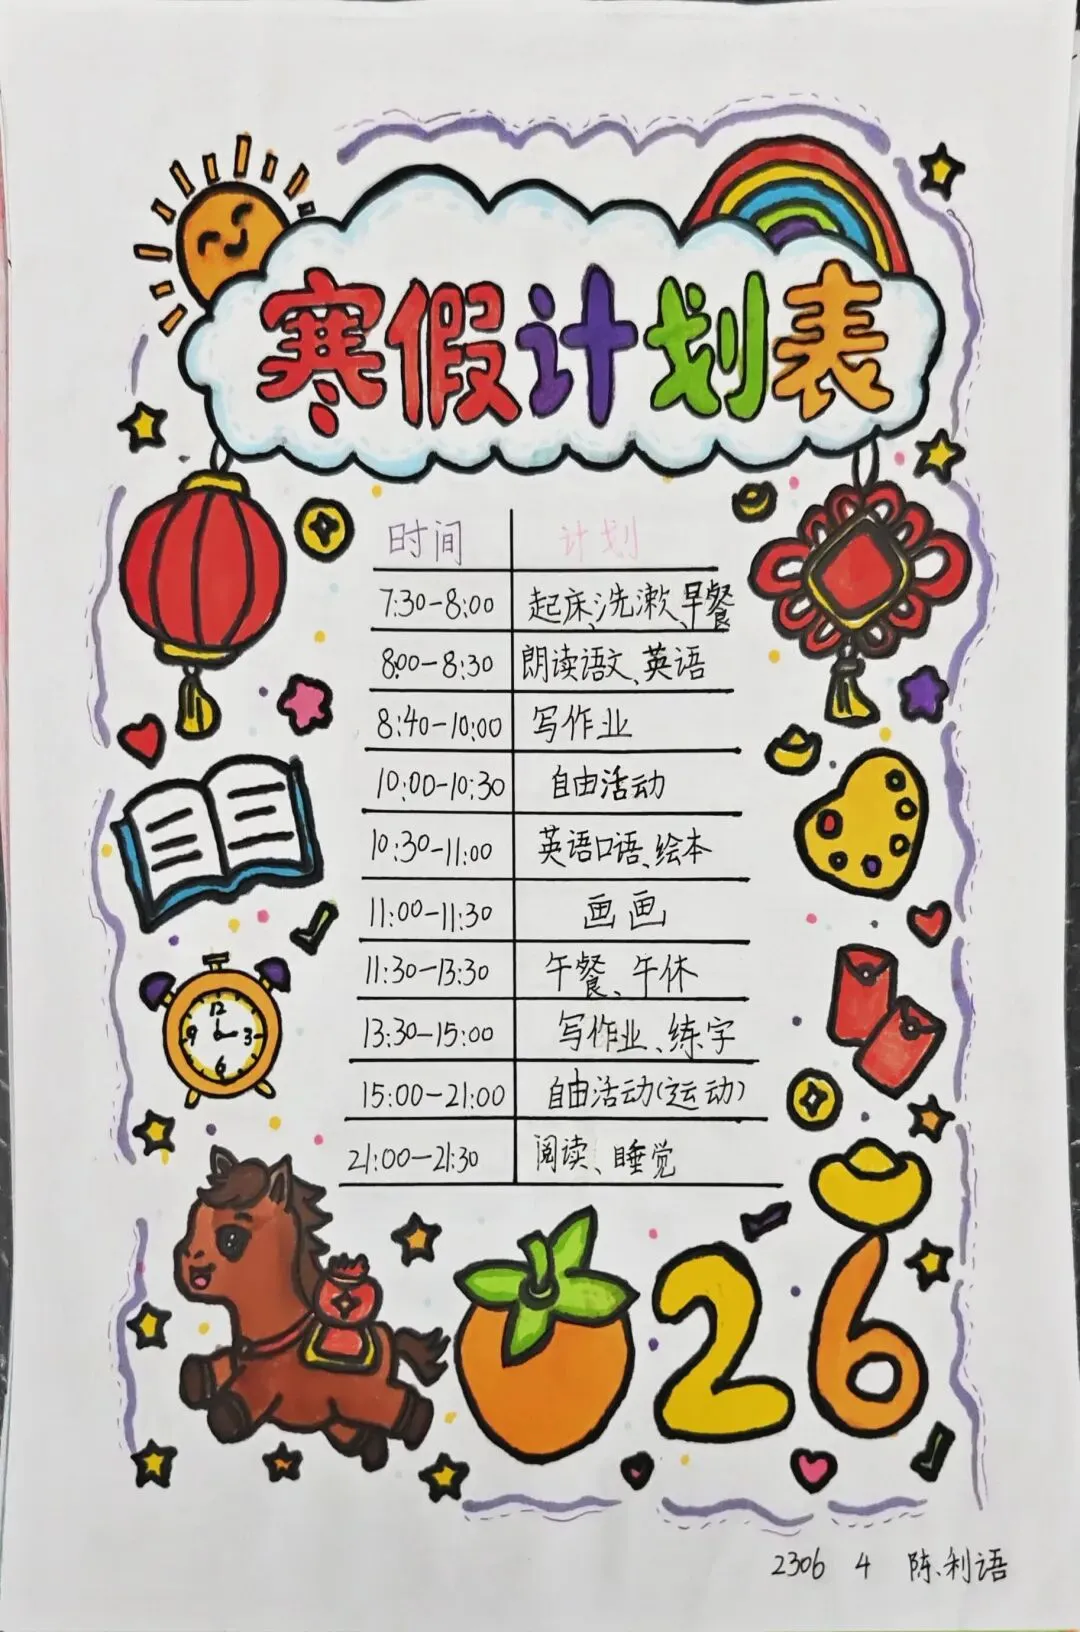 寒假计划表
时间 计划
7:30-8:00 起床、洗漱、早餐
8:00-8:30 朗读语文、英语
8:40-10:00 写作业
10:00-10:30 自由活动
10:30-11:00 英语口语、绘本
11:00-11:30 画画
11:30-13:30 午餐、午休
13:30-15:00 写作业、练字
15:00-21:00 自由活动(运动)
21:00-21:30 阅读、睡觉
12
9 3
6
26
2306 4 陈利语